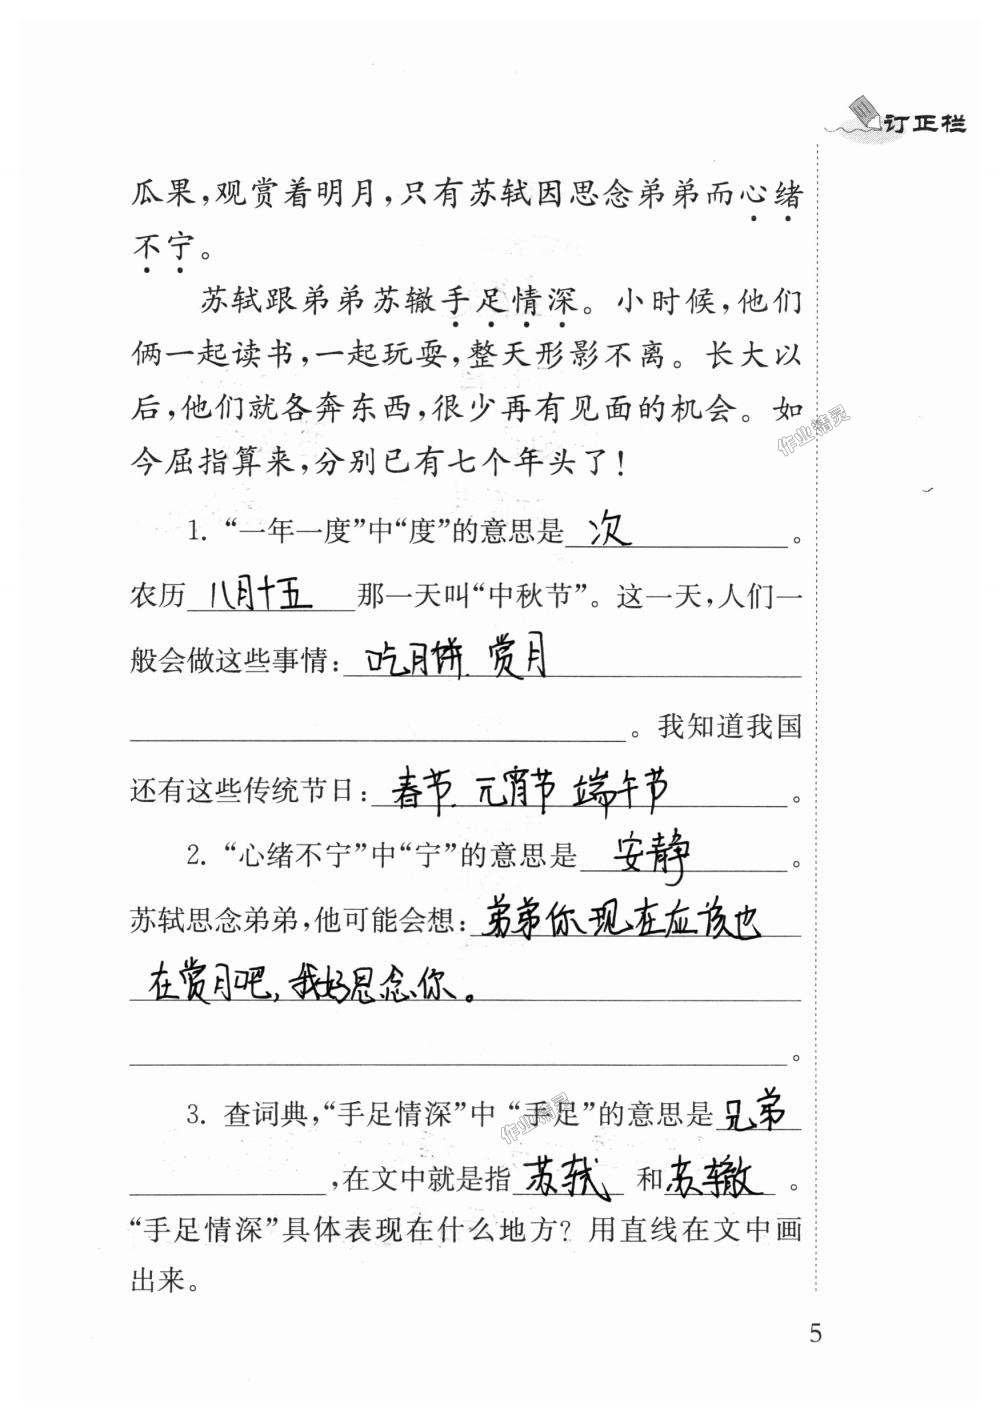 订正栏
瓜果，观赏着明月，只有苏轼因思念弟弟而心绪
不宁。
苏轼跟弟弟苏辙手足情深。小时候，他们
俩一起读书，一起玩耍，整天形影不离。长大以
后，他们就各奔东西，很少再有见面的机会。如
今屈指算来，分别已有七个年头了！
作业精灵
1. “一年一度”中“度”的意思是 次 。
农历 八月十五 那一天叫“中秋节”。这一天，人们一
般会做这些事情： 吃月饼、赏月
。我知道我国
还有这些传统节日： 春节、元宵节 端午节 。
2. “心绪不宁”中“宁”的意思是 安静 。
苏轼思念弟弟，他可能会想： 弟弟你现在应该也
在赏月吧，我好思念你。
。
3. 查词典，“手足情深”中“手足”的意思是 兄弟
作业精灵
，在文中就是指 苏轼 和 苏辙 。
“手足情深”具体表现在什么地方？用直线在文中画
出来。
5